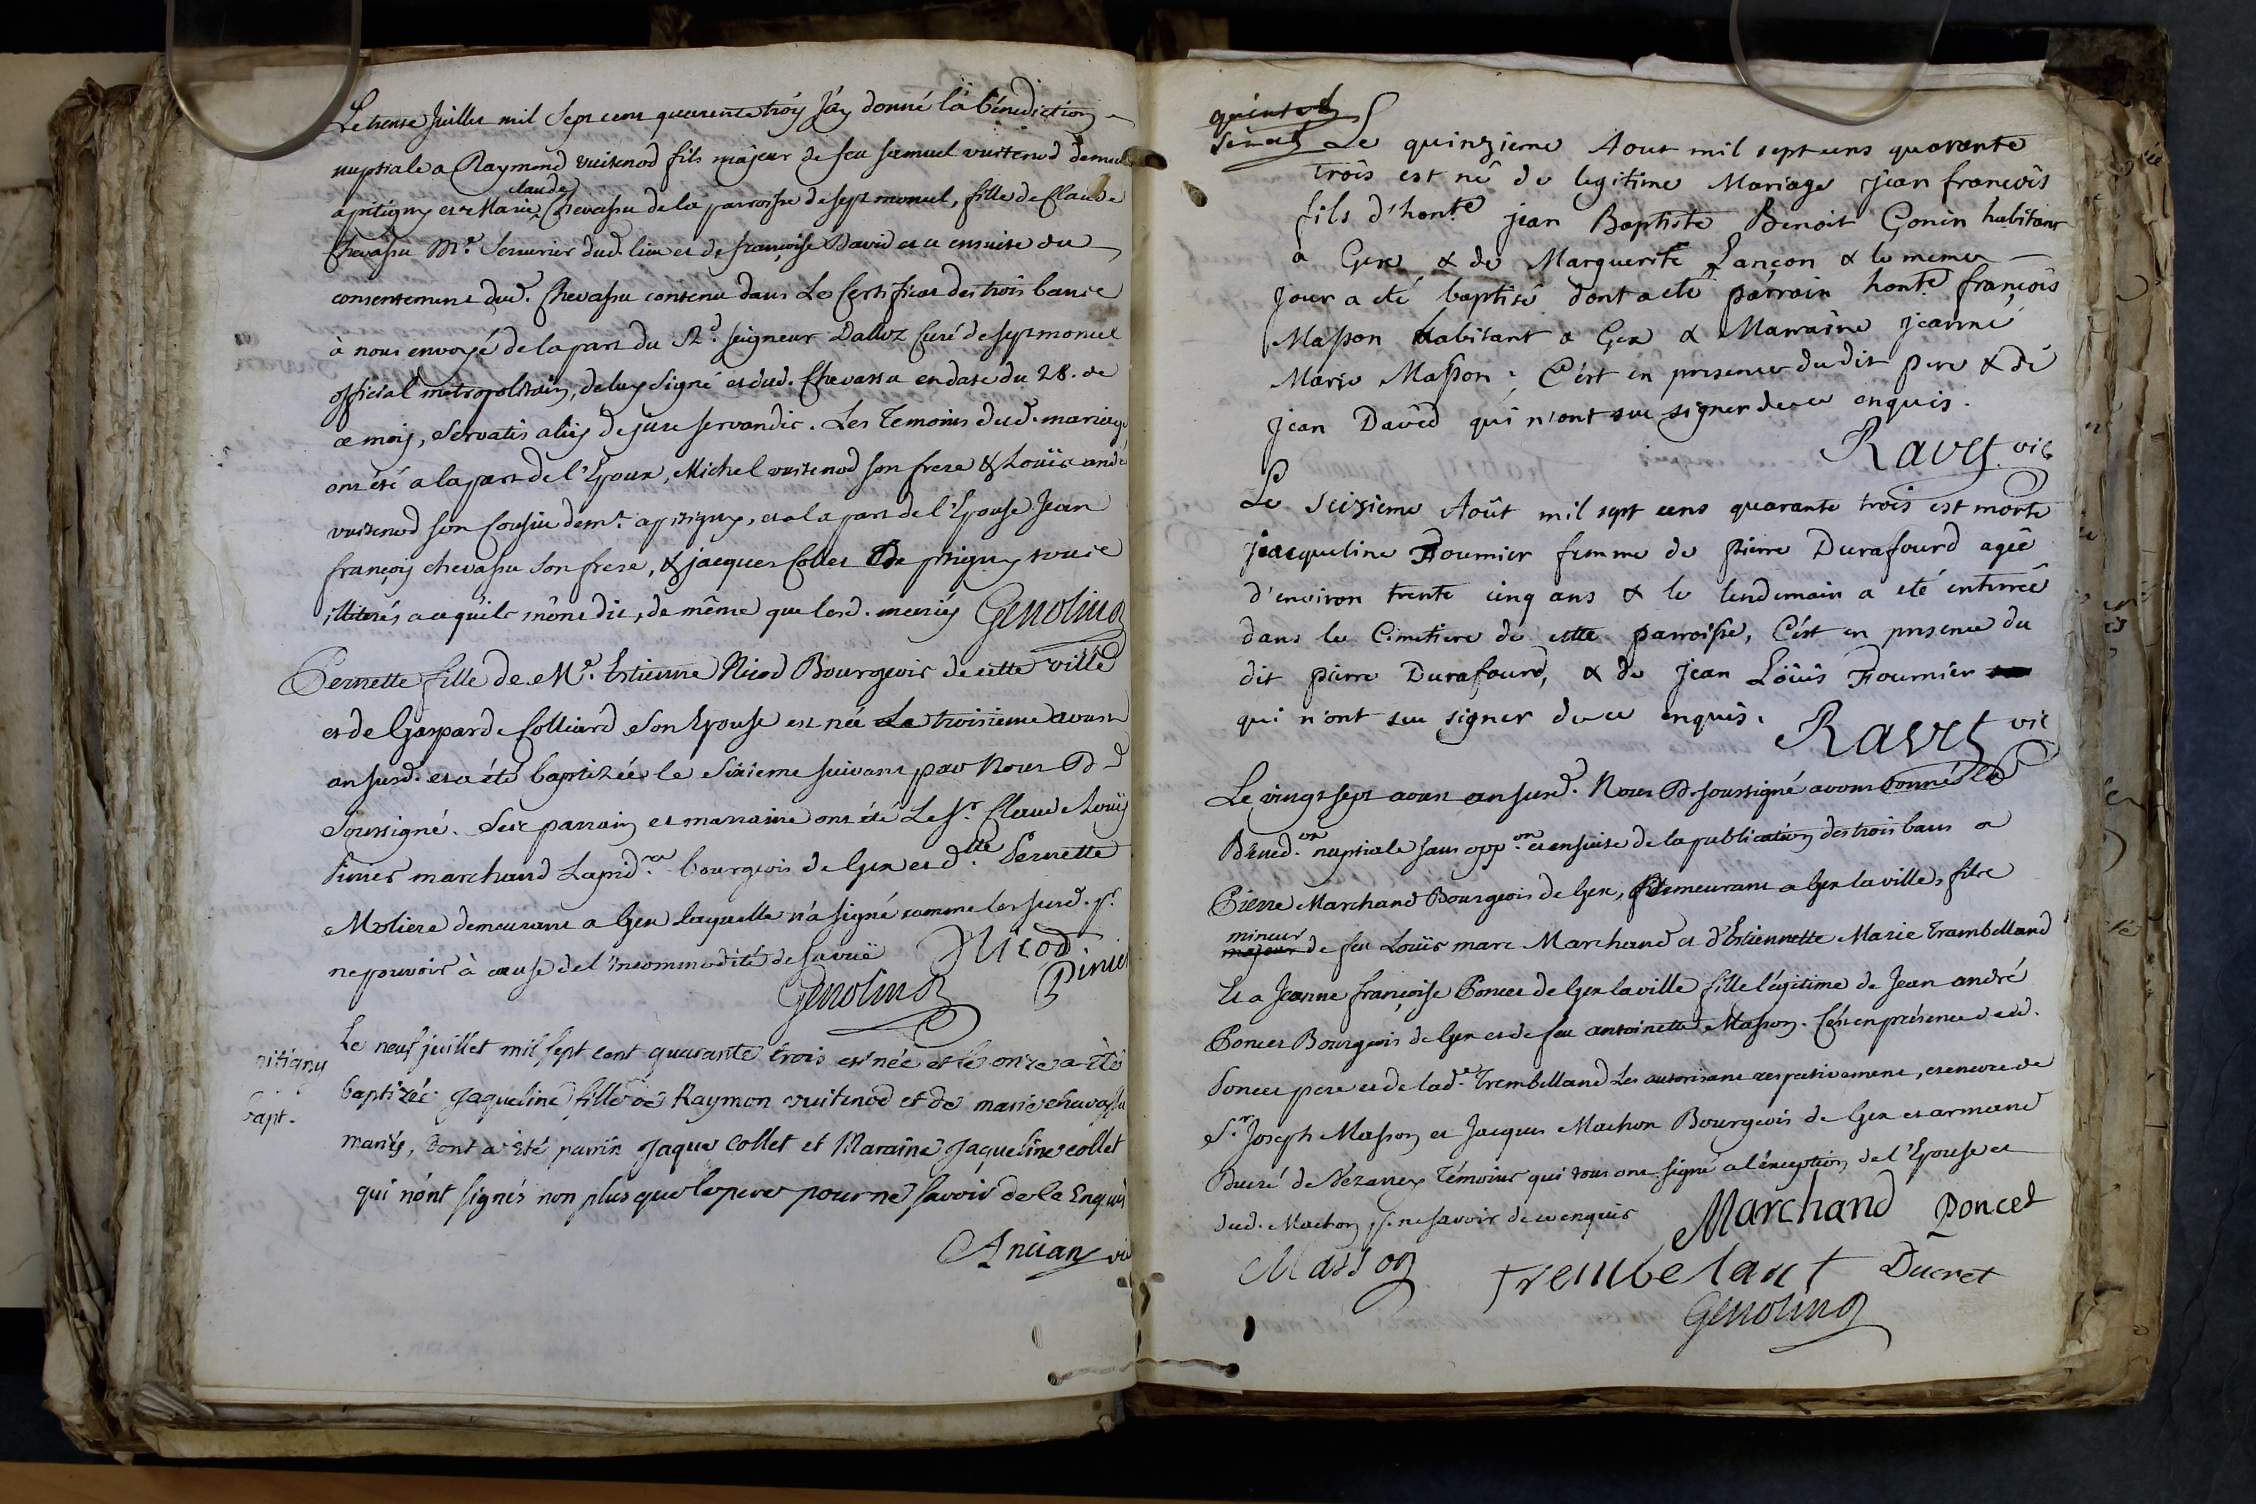 Le trente Juillet mil sept cent quarente troÿ J'ay donné la bénediction
nuptiale a Raymond vuitenod fils majeur de feu samuel vuitenod demeu
a pitigny et a Marie claude Chevassu de la parroisse de sept moncel, fille de Claude
Chevassu Me. Serrurier dud. lieu et de françoise David et ce ensuite du
consentement dud. Chevassu contenu dans Le Certificat des trois bancs
à nous envoyé de la part du Rd. seigneur Dalloz Curé de sept moncel
official métropolitain, de luy signé et dud. Chevassu en date du 28. de
ce mois, servatis aliis de jure servandis. Les Temoins dud. mariage
ont été a la part de l'Epoux, Michel vuitenod son frere & Louïs andé
vuitenod son Cousin demt. a pitigny, et a la part de l'Epouse Jean
françois chevassu son frere, & jacques Collet de pitigny tous
illiterés a ce qu'ils m'ont dit, de même que lesd. mariés Genolin
Pernette fille de Me. Estienne Nicod Bourgeois de cette ville
et de Gasparde Colliard son Epouse est née Le troisieme aoust
an susd. et a été baptizée le Sixieme suivant par Nous
soussigné. Ses parrain et marraine ont été Le Sr. Claude Louïs
Pinier marchand Lapidre. bourgeois de Gex et dlle. Pernette
Moliere demeurant a Gex laquelle n'a signé comme les susd. pr.
ne pouvoir à cause de l'incommodité de sa vuë Nicod.
Genolin Pinier
pitigny
bapt.
Le neuf juillet mil sept cent quarante trois est née et le onze a été
baptizée Jaqueline fille de Raymon vuitenod et de marie chevassu
mariés, dont a été parrin Jaque Collet et Maraine Jaqueline collet
qui n'ont signés non plus que le pere pour ne savoir de le Enquis
Ancian vic

Le quinzieme Aout mil sept cens quarante
trois est né de legitime Mariage jean françois
fils d'honte. jean Baptiste Benoit Gonin habitant
a Gex & de Marguerite Lançon & le meme
jour a eté baptisé dont a eté parrain honte. françois
Masson habitant a Gex & Marraine jeanne
Marie Masson. C'ést en presence dudit pere & de
jean David qui n'ont sue signer de ce enquis.
Ravet. vic
Le seizieme Août mil sept cens quarante trois est morte
jacqueline Fournier femme de pierre Durafourd agée
d'environ trente cinq ans & le lendemain a eté enterrée
dans le Cimetiere de cette parroisse, C'ést en presence du
dit pierre Durafourd, & de Jean Loüis Fournier
qui n'ont seu signer de ce enquis. Ravet vic
Le vingt sept aout an susd. Nous soussigné avons donné la
Béned.on nuptiale sans opp.on et ensuite de la publication des trois bans a
Pierre Marchand Bourgeois de Gex, demeurant a Gex la ville, fils
mineur
majeur de feu Louïs marc Marchand et d'Estiennette Marie Trambelland
Et a Jeanne françoise Poncet de Gex la ville fille légitime de Jean andré
Poncet Bourgeois de Gex et de feu antoinette Masson. C'ést en présence dud.
Poncet pere et de lad.e Trembelland Les autorisant respectivement, et encore de
Sr. Joseph Masson et Jacques Machon Bourgeois de Gex et armand
Ducré de Vezanex Témoins qui tous ont signé a l'exception de l'Epouse et
dud. Machon pr. ne savoir de ce enquis Marchand Poncet
Masson trembelant Ducret
Genolin